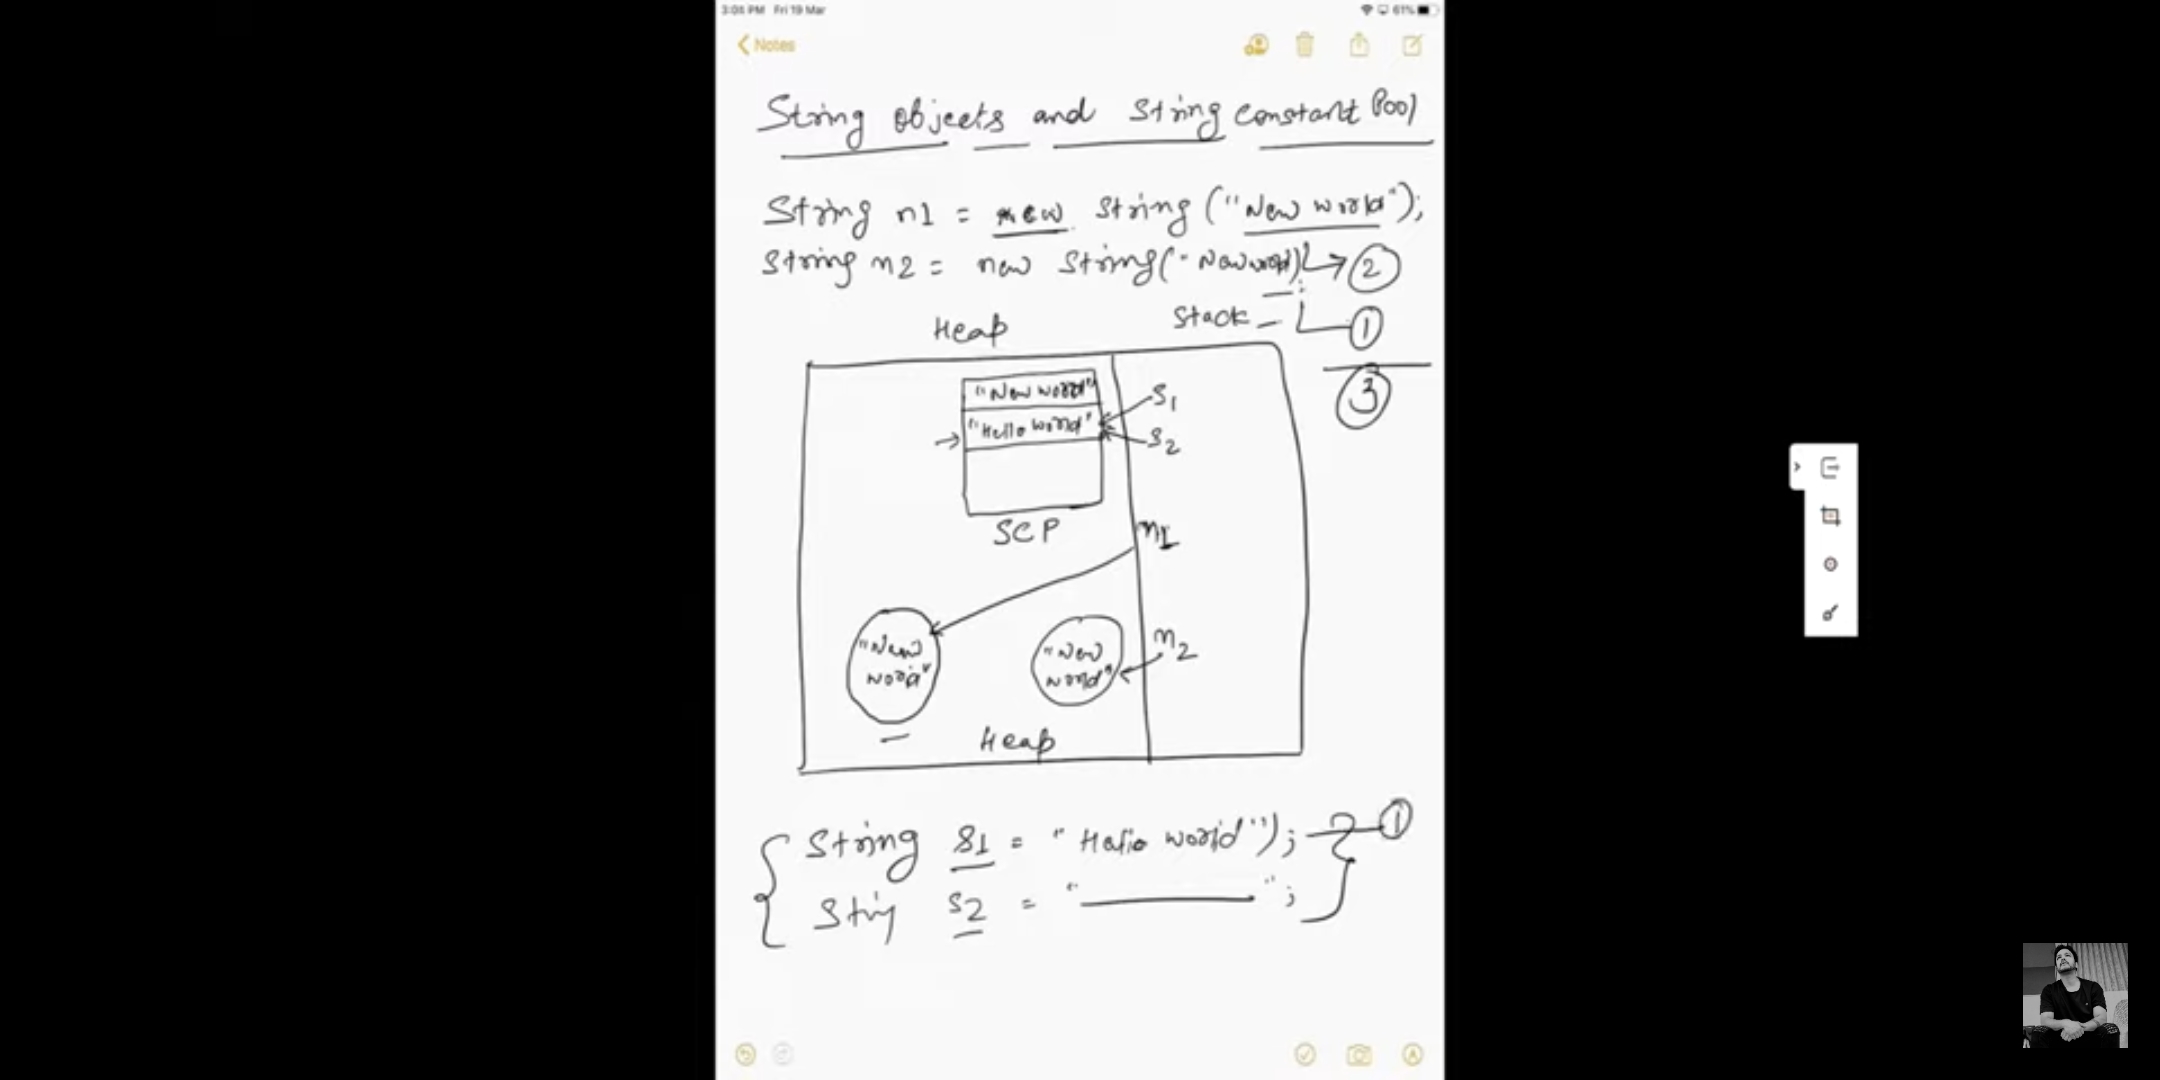 3:08 PM Fri 19 Mar
61%
Notes
String objects and String constant Pool
String n1 = new String ("New world");
String n2 = new String("New world");
2
Stack
1
Heap
3
"New world"
"Hello world"
S1
S2
SCP
n1
"New
world"
"New
world"
n2
Heap
String S1 = "Hello world");
1
String s2 = " ";